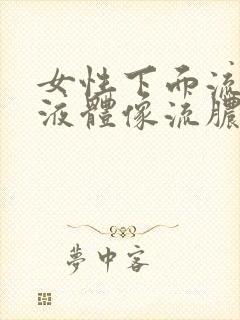 女性下面流
液體像流膿
夢中客